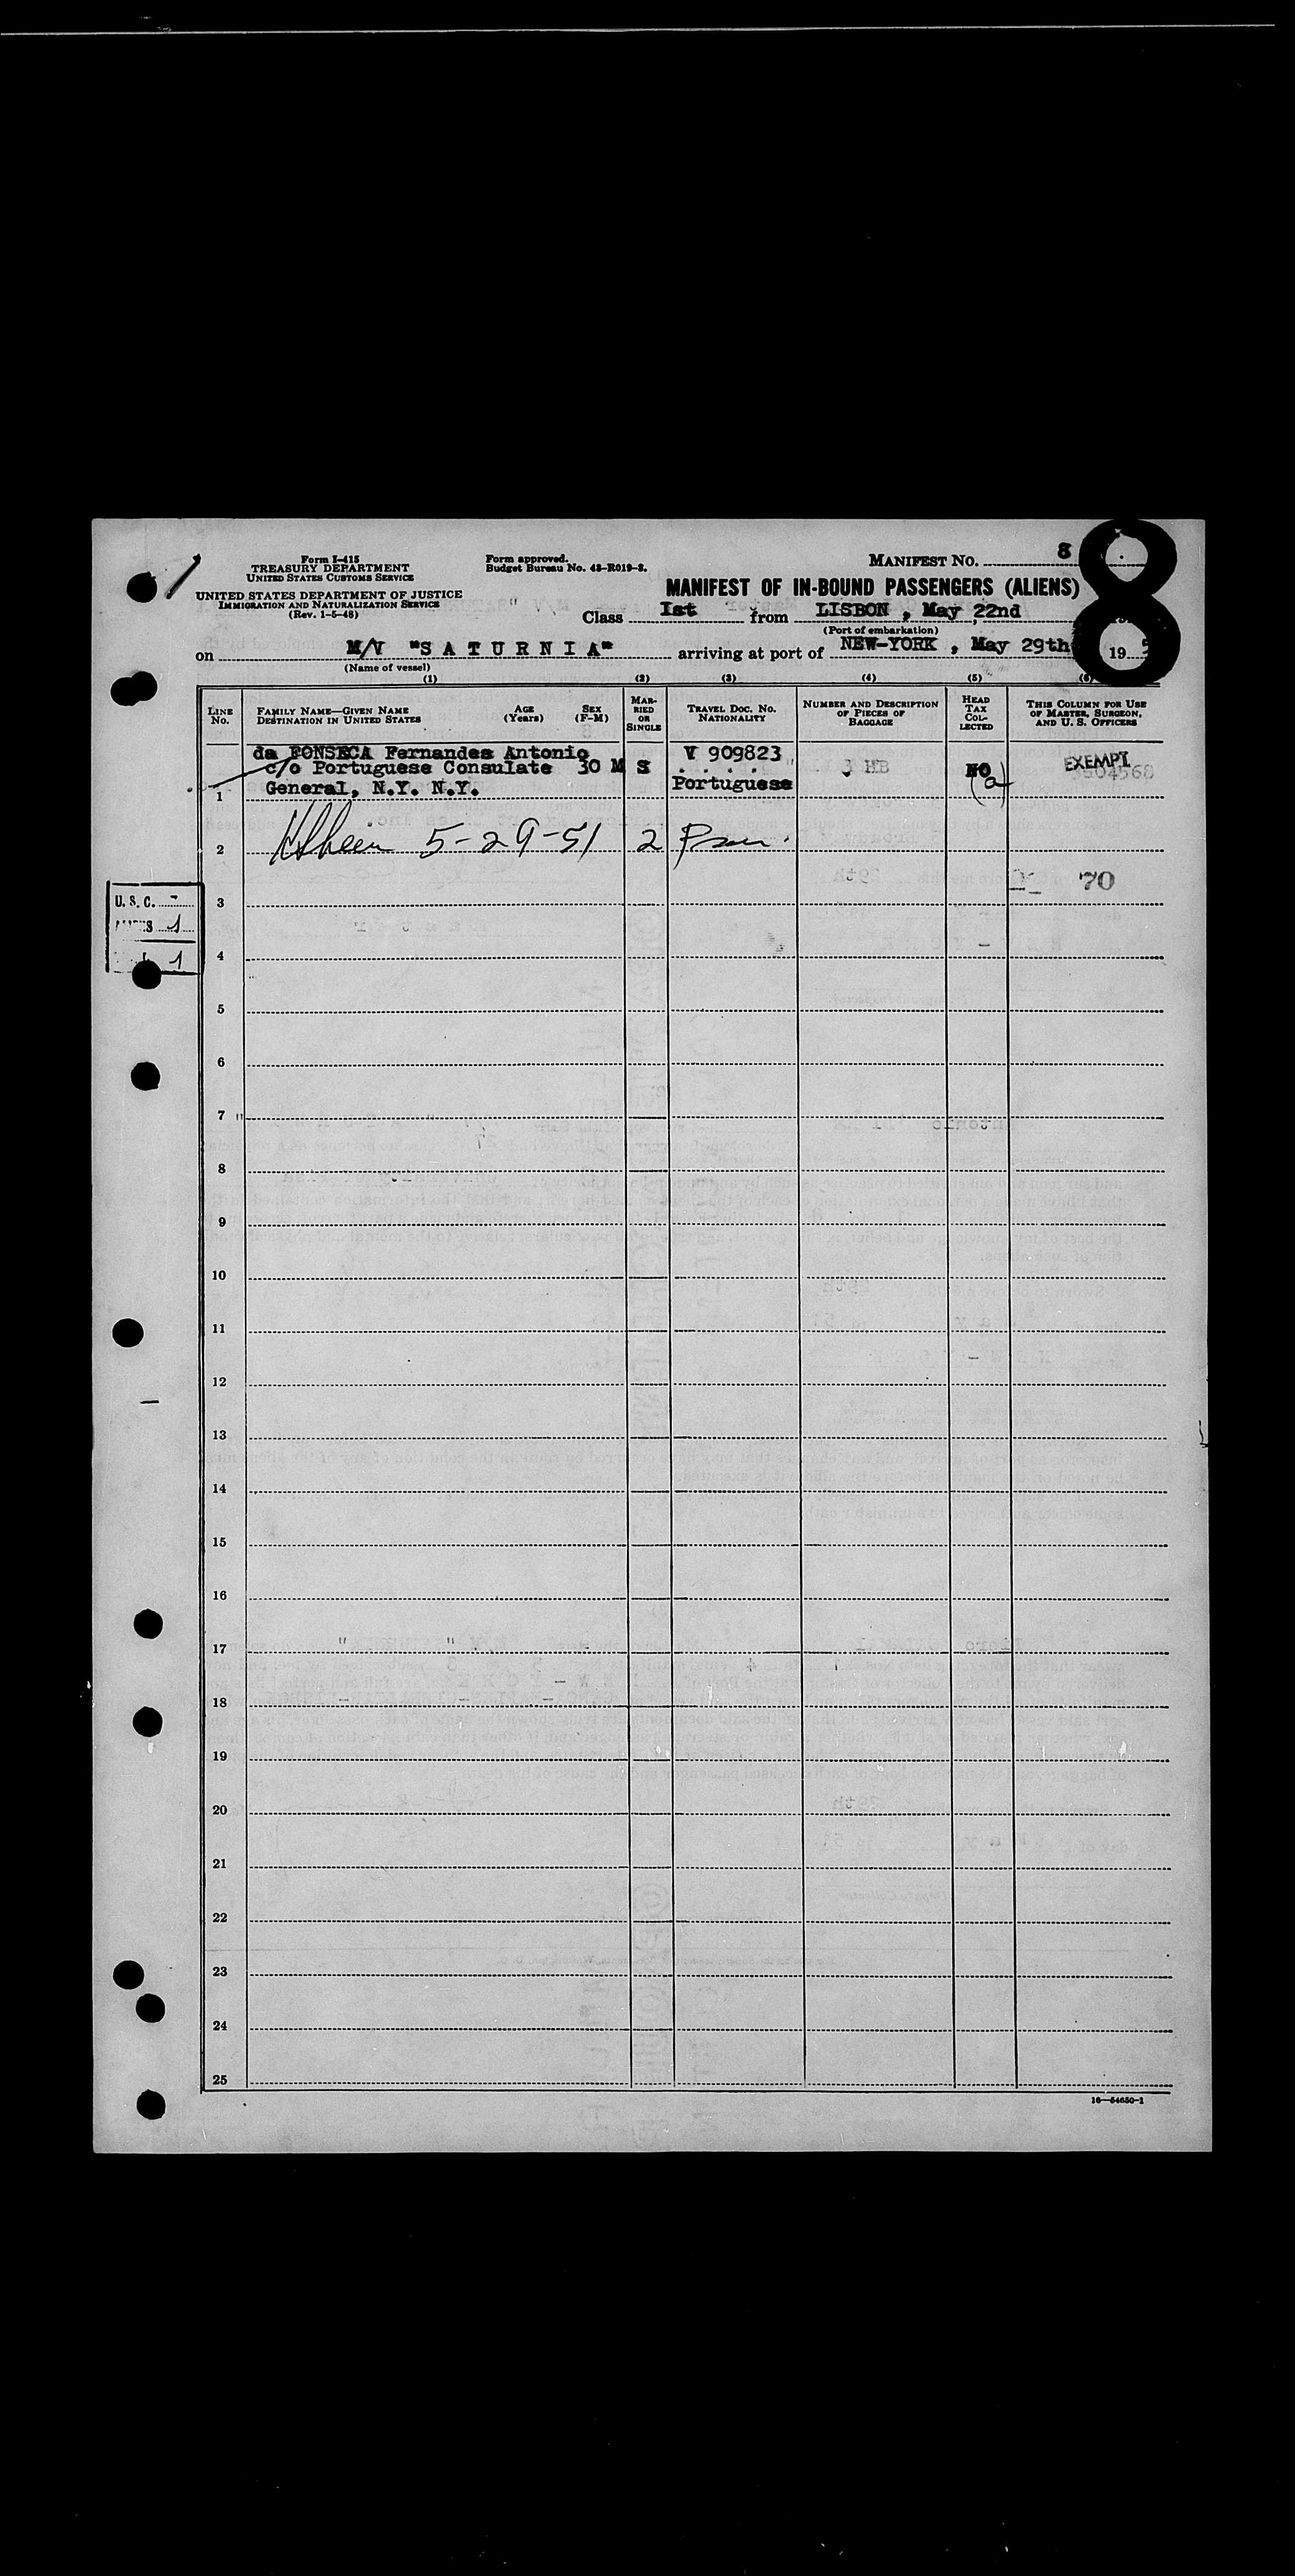 Form I-415
TREASURY DEPARTMENT
UNITED STATES CUSTOMS SERVICE
UNITED STATES DEPARTMENT OF JUSTICE
IMMIGRATION AND NATURALIZATION SERVICE
(Rev. 1-5-48)
Form approved.
Budget Bureau No. 43-R019-3.
MANIFEST NO. 8
8
MANIFEST OF IN-BOUND PASSENGERS (ALIENS)
Class Ist from LISBON , May 22nd
(Port of embarkation)
on M/V "S A T U R N I A" arriving at port of NEW-YORK , May 29th 19 5
(Name of vessel)
(1) (2) (3) (4) (5) (6)
LINE NO.
FAMILY NAME—GIVEN NAME
DESTINATION IN UNITED STATES
AGE (Years)
SEX (F-M)
MARRIED OR SINGLE
TRAVEL DOC. NO.
NATIONALITY
NUMBER AND DESCRIPTION OF PIECES OF BAGGAGE
HEAD TAX COLLECTED
THIS COLUMN FOR USE OF MASTER, SURGEON, AND U. S. OFFICERS
da FONSECA Fernandes Antonio V 909823
c/o Portuguese Consulate 30 M S 3 HB NO EXEMPT
1 General, N.Y. N.Y. Portuguese
2 5-29-51 2
70
U. S. C.
3
1
4
1
5
6
7
8
9
10
11
12
13
14
15
16
17
18
19
20
21
22
23
24
25
16—54650-1